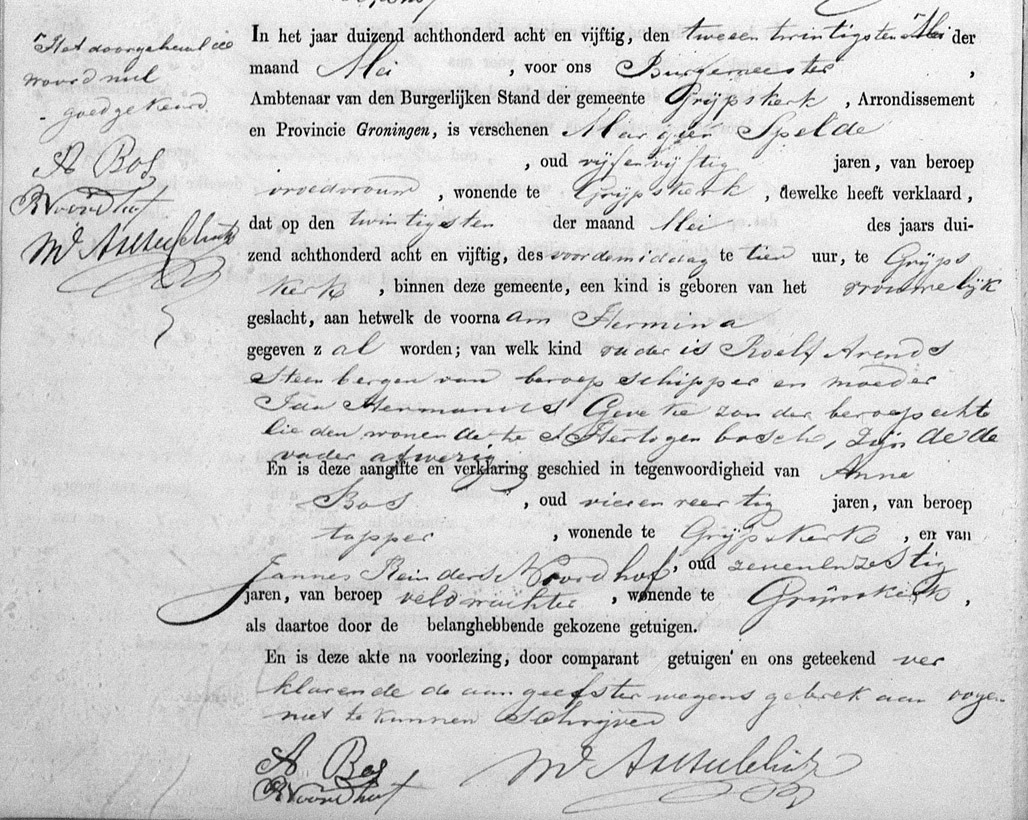 "Het doorgehaalde
woord nul
goedgekeurd
A Bos
RNoordhof
In het jaar duizend achthonderd acht en vijftig, den tweeen twintigsten Mei der
maand Mei , voor ons Burgemeester ,
Ambtenaar van den Burgerlijken Stand der gemeente Grijpskerk , Arrondissement
en Provincie Groningen, is verschenen Margien Spelde
, oud vijfenvijftig jaren, van beroep
vroedvrouw , wonende te Grijpskerk , dewelke heeft verklaard,
dat op den twintigsten der maand Mei des jaars dui-
zend achthonderd acht en vijftig, des voordemiddag te tien uur, te Grijps
kerk , binnen deze gemeente, een kind is geboren van het vrouwelijk
geslacht, aan hetwelk de voorna am Hermina
gegeven z al worden; van welk kind vader is Roelf Arends
Steenbergen van beroep schipper en moeder
Hermannes zonder beroep echte
lieden wonende te S Hertogenbosch, zijnde de
vader afwezig
En is deze aangifte en verklaring geschied in tegenwoordigheid van Anne
Bos , oud vierenveertig jaren, van beroep
tapper , wonende te Grijpskerk , en van
Jannes Reinders Noordhof, oud zevenenzestig
jaren, van beroep veldwachter , wonende te Grijpskerk ,
als daartoe door de belanghebbende gekozene getuigen.
En is deze akte na voorlezing, door comparant getuigen en ons geteekend ver
klarende de aangeefster wegens gebrek aan oogen
niet te kunnen schrijven
A Bos
RNoordhof